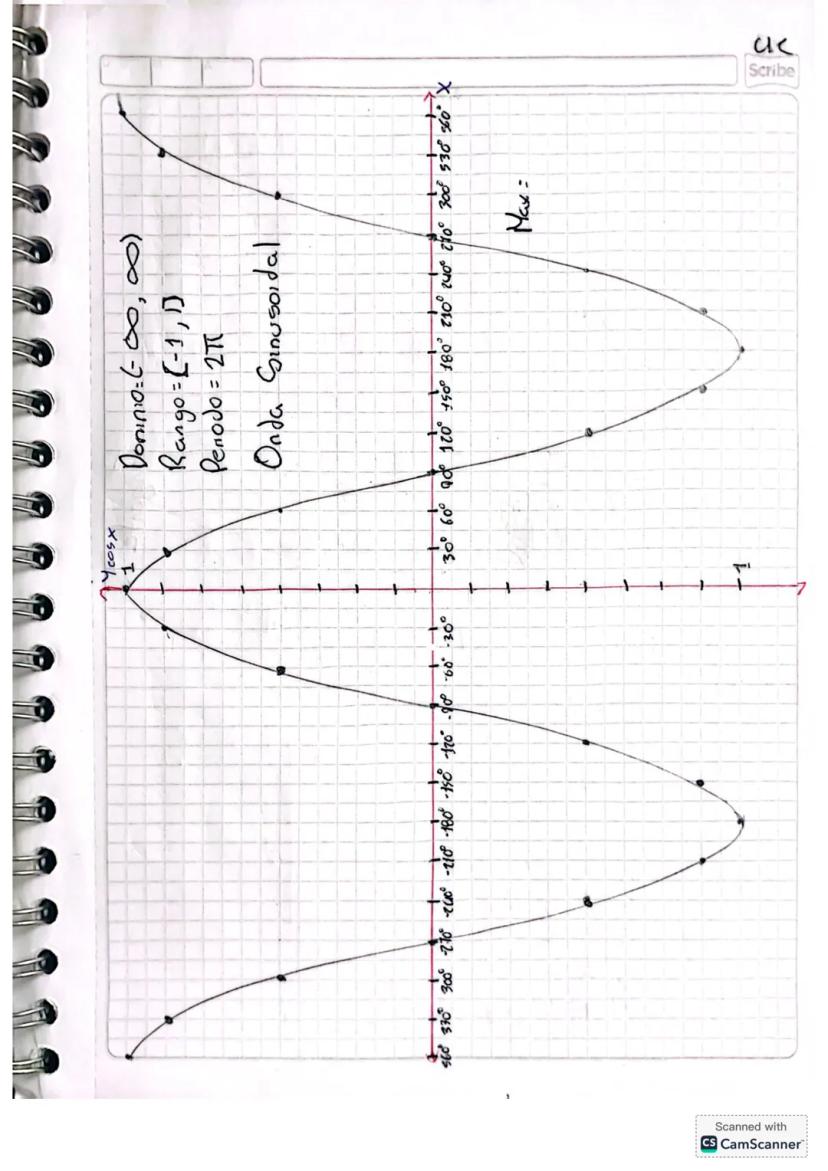 Y cos x
1
Dominio=(-∞, ∞)
Rango=[-1, 1]
Periodo = 2π
Onda Sinusoidal
360° 330° 300° -270° -240° -210° -180° -150° -120° -90° -60° -30° 30° 60° 90° 120° 150° 180° 210° 240° 270° 300° 330° 360° X
Max=
1
Scribe
Scanned with
CS CamScanner